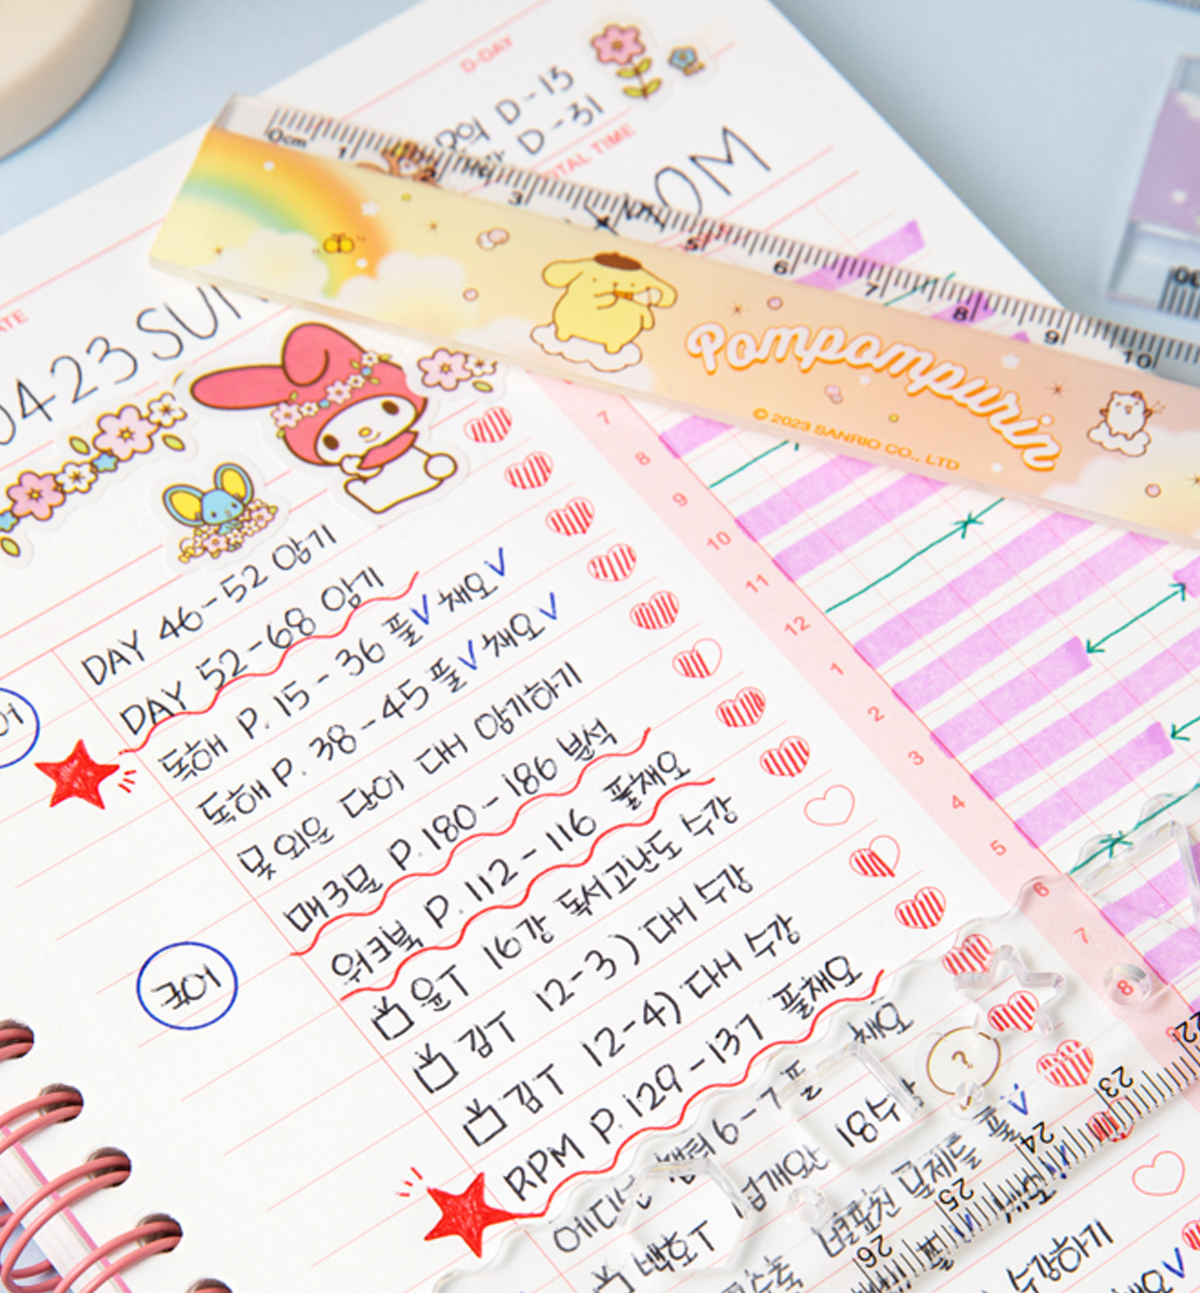 D-DAY
모의 D-13
D-31
TOTAL TIME
0M
0cm 1 2 3 5 6 7 8 9 10
Pompompurin
© 2023 SANRIO CO., LTD
DATE
0423.SUN
DAY 46-52 암기
DAY 52-68 암기
독해 P. 15-36 풀V 채오V
독해 P. 38-45 풀V 채오V
못 외운 단어 다시 암기하기
매3밀 P. 180-186 분석
워크북 P. 112-116 풀채오
윤T 16강 독서고난도 수강
국어
김T 12-3) 다시 수강
김T 12-4) 다시 수강
RPM P. 129-137 풀채오
6-7 풀 채오
18수
백호T
수강하기
7
8
9
10
11
12
1
2
3
4
5
6
7
8
?
22 23 24 25 26